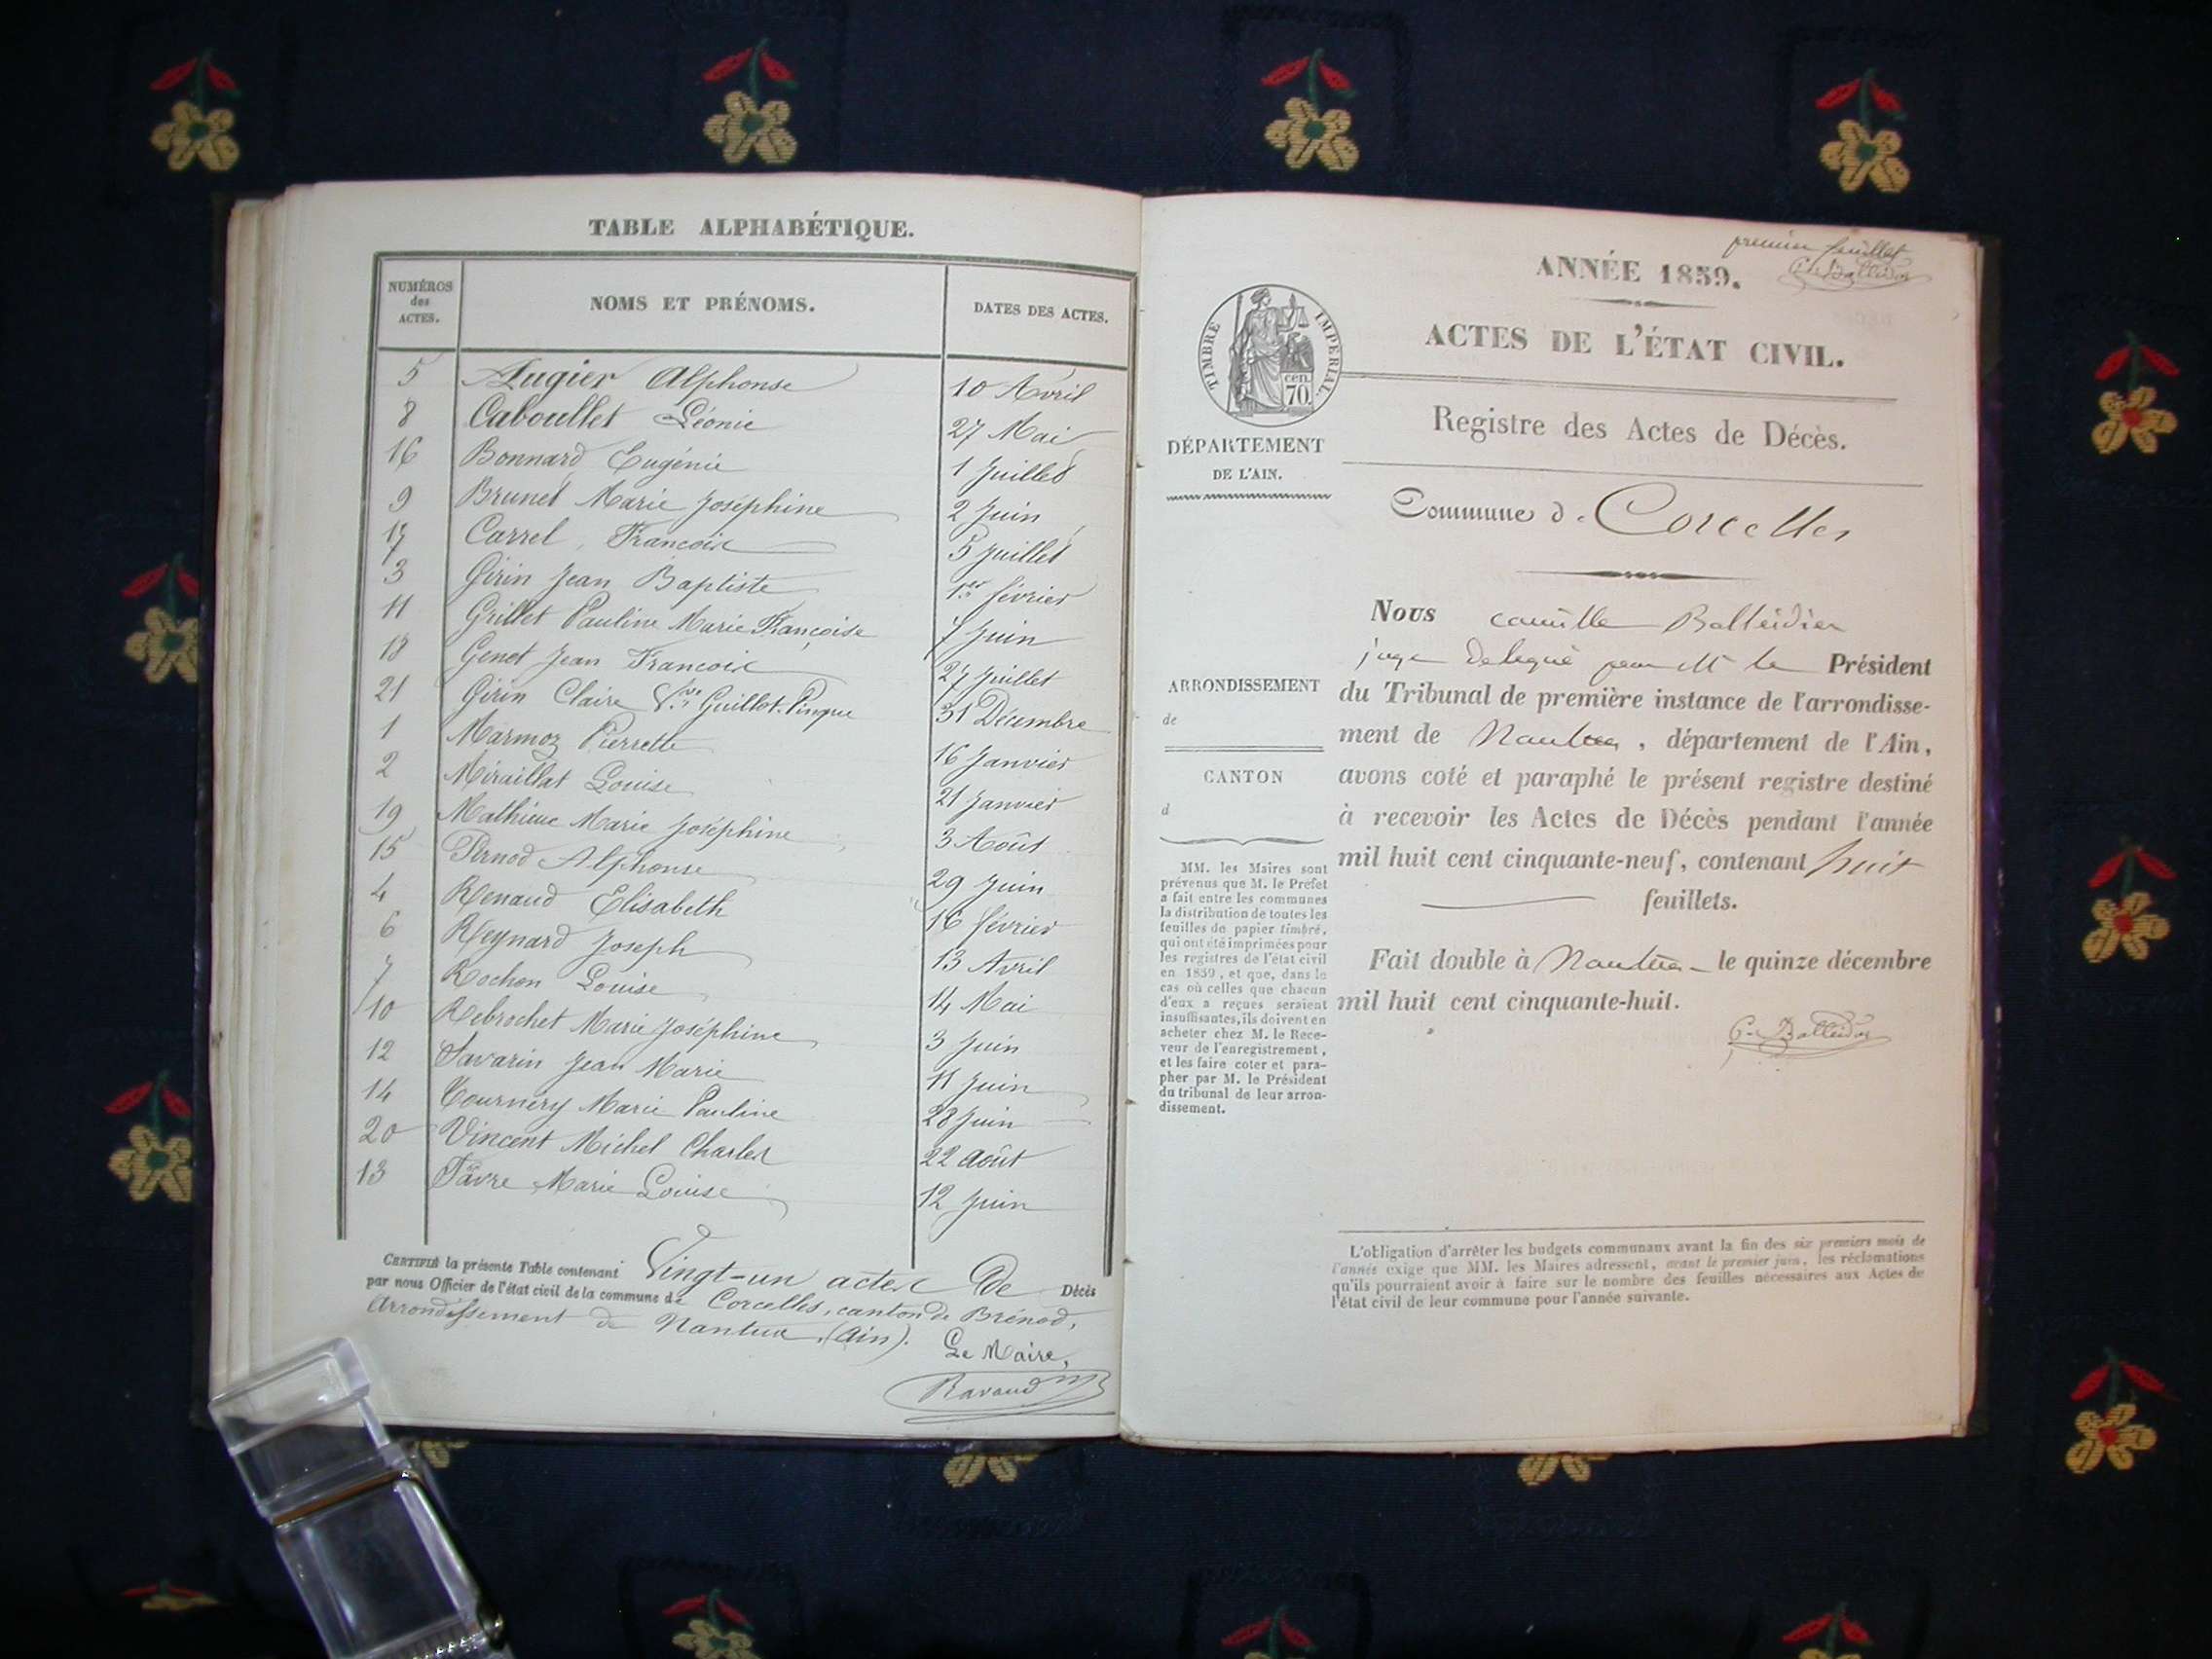 TABLE ALPHABÉTIQUE.
NUMÉROS des ACTES. NOMS ET PRÉNOMS. DATES DES ACTES.
5 Augier Alphonse 10 Avril
8 Caboullet Léonie 27 Mai
16 Bonnard Eugénie 1 Juillet
9 Brunet Marie Joséphine 2 Juin
17 Carrel François 5 Juillet
3 Girin Jean Baptiste 1er février
11 Grillet Pauline Marie Françoise 7 Juin
18 Genot Jean François 27 Juillet
21 Girin Claire Vve Guillot-Pingue 31 Décembre
1 Marmoz Pierrette 16 Janvier
2 Miraillat Louise 21 Janvier
19 Mathieu Marie Joséphine 3 Août
15 Pernod Alphonse 29 Juin
4 Renaud Elisabeth 16 février
6 Reynard Joseph 13 Avril
7 Rochon Louise 14 Mai
10 Rebrochet Marie Joséphine 3 Juin
12 Savarin Jean Marie 11 Juin
14 Tournery Marie Pauline 28 Juin
20 Vincent Michel Charles 22 Août
13 Favre Marie Louise 12 Juin
CERTIFIÉ la présente Table contenant Vingt-un actes de Décès
par nous Officier de l'état civil de la commune de Corcelles, canton de Brénod,
Arrondissement de Nantua, (Ain).
Le Maire,
Ravaud
premier feuillet
C. Balleidier
ANNÉE 1859.
ACTES DE L'ÉTAT CIVIL.
TIMBRE IMPERIAL.
cen. 70.
DÉPARTEMENT
DE L'AIN.
Registre des Actes de Décès.
Commune de Corcelles
ARRONDISSEMENT
de
CANTON
d
MM. les Maires sont
prévenus que M. le Préfet
a fait entre les communes
la distribution de toutes les
feuilles de papier timbré,
qui ont été imprimées pour
les registres de l'état civil
en 1859, et que, dans le
cas où celles que chacun
d'eux a reçues seraient
insuffisantes, ils doivent en
acheter chez M. le Rece-
veur de l'enregistrement,
et les faire coter et para-
pher par M. le Président
du tribunal de leur arron-
dissement.
Nous camille Balleidier
juge délégué par M le Président
du Tribunal de première instance de l'arrondisse-
ment de Nantua, département de l'Ain,
avons coté et paraphé le présent registre destiné
à recevoir les Actes de Décès pendant l'année
mil huit cent cinquante-neuf, contenant huit
feuillets.
Fait double à Nantua le quinze décembre
mil huit cent cinquante-huit.
C. Balleidier
L'obligation d'arrêter les budgets communaux avant la fin des six premiers mois de
l'année exige que MM. les Maires adressent, avant le premier juin, les réclamations
qu'ils pourraient avoir à faire sur le nombre des feuilles nécessaires aux Actes de
l'état civil de leur commune pour l'année suivante.